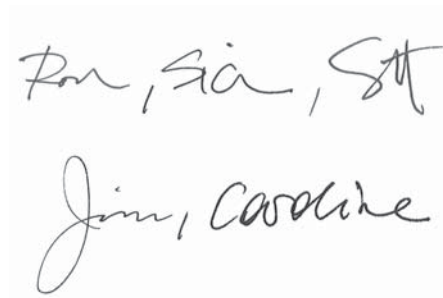 Ron, Sia, Scott
Jim, Caroline